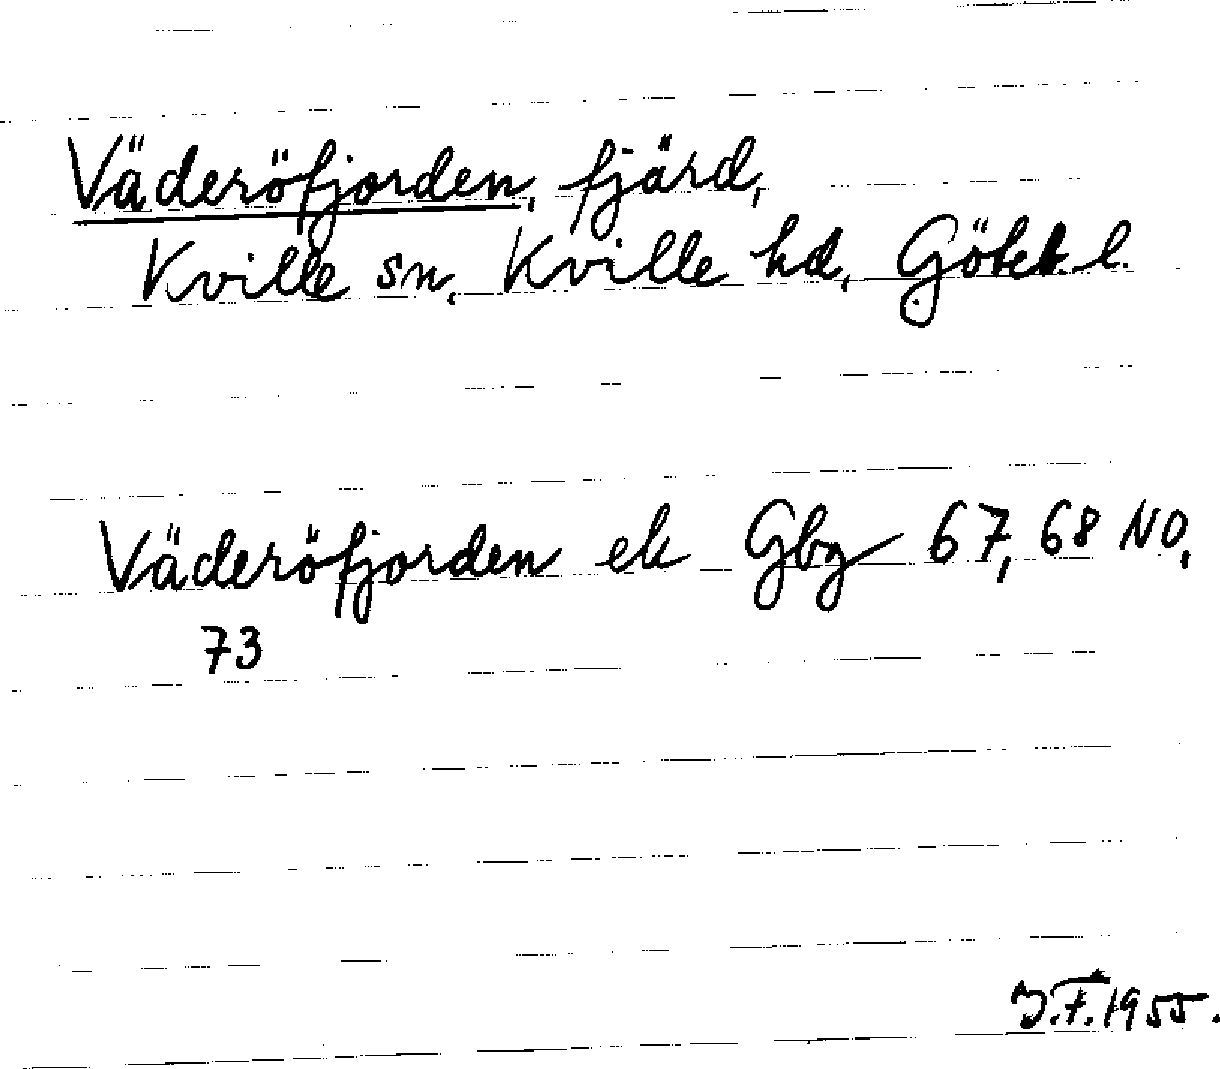 Väderöfjorden, fjärd,
Kville sn, Kville hd, Göteb. l.
Väderöfjorden ek Gbg 67, 68 NO,
73
J.F. 1955.